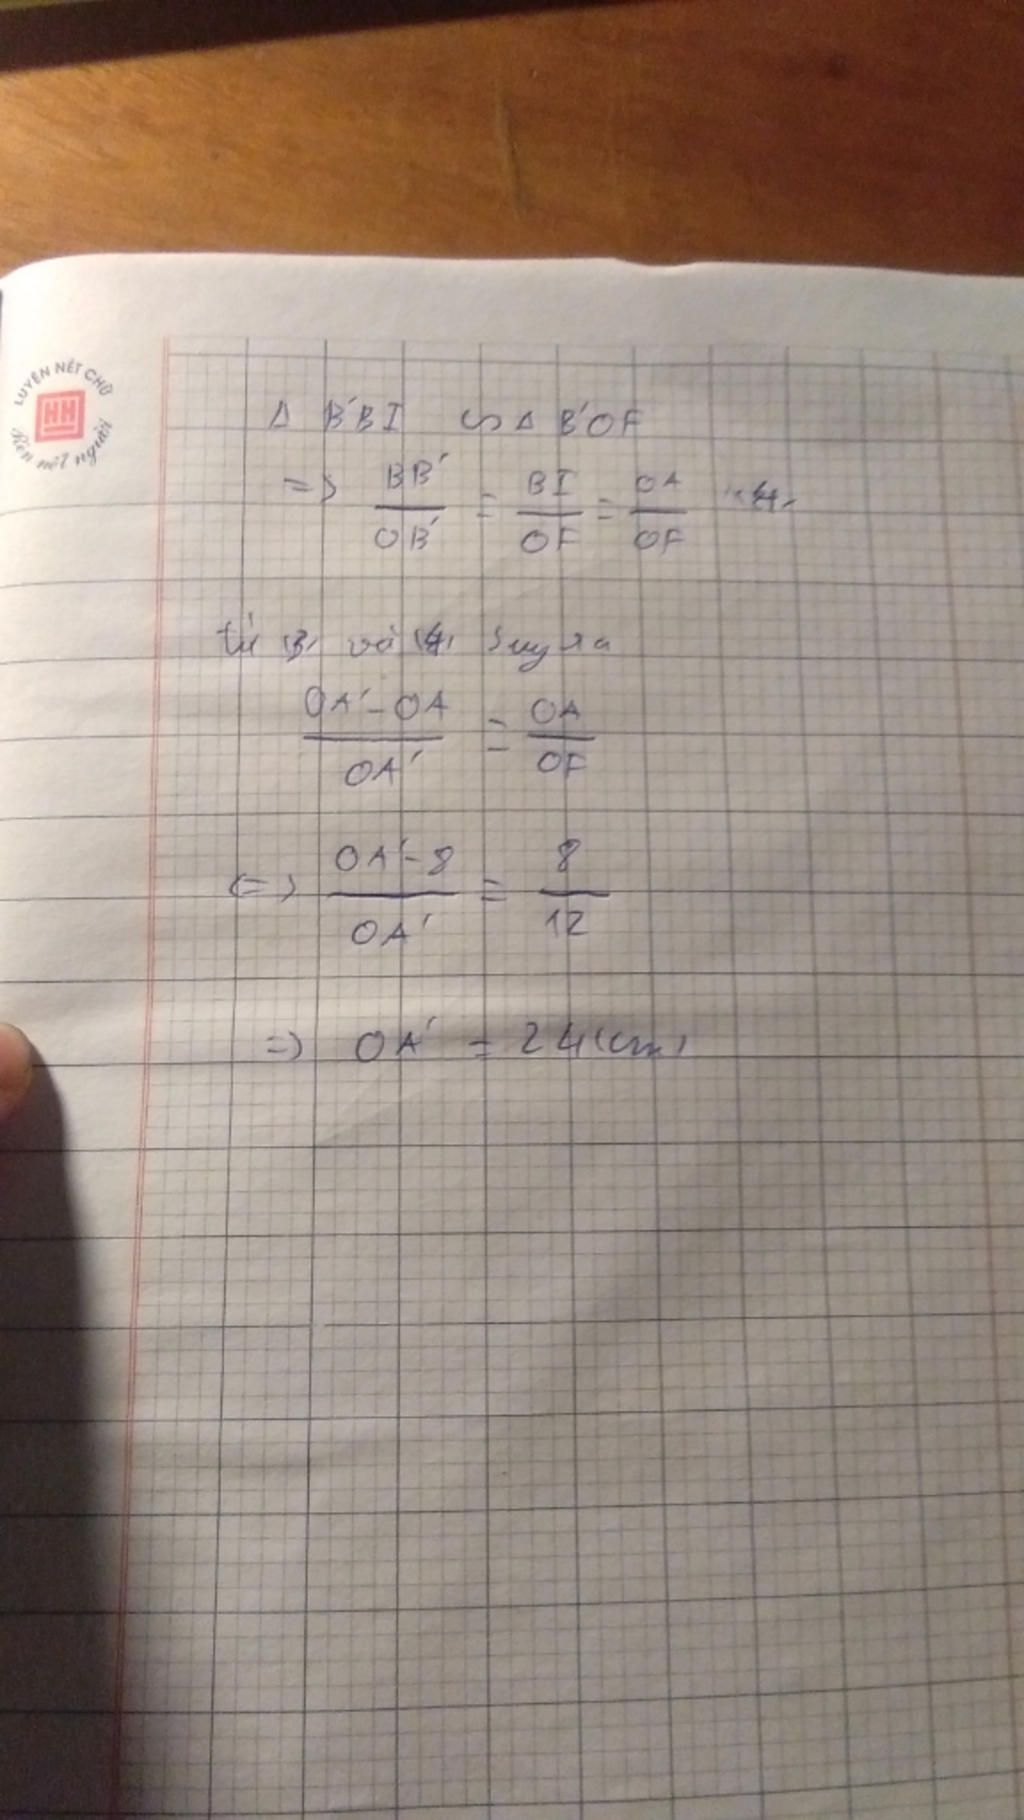 LUYỆN NÉT CHỮ
HH
Rèn nết người
Δ B'BI ∽ Δ B'OF
=> BB'/OB' = BI/OF = OA/OF (4)
từ (3) và (4) suy ra
OA' - OA / OA' = OA/OF
<=> OA' - 8 / OA' = 8/12
=> OA' = 24 (cm)